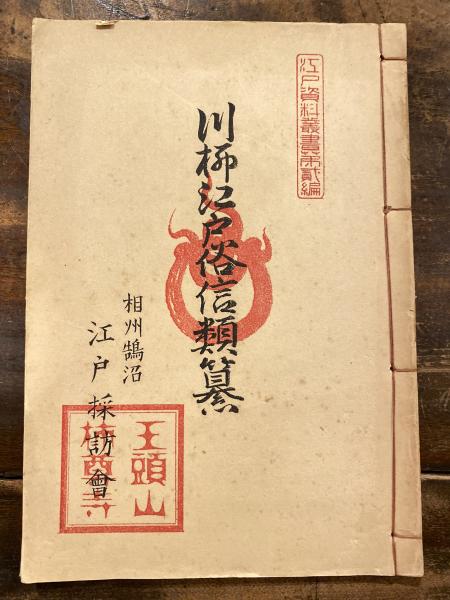 江戸資料叢書第貳編
川柳江戸俗信類纂
相州鵠沼
江戸採訪會
王頭山